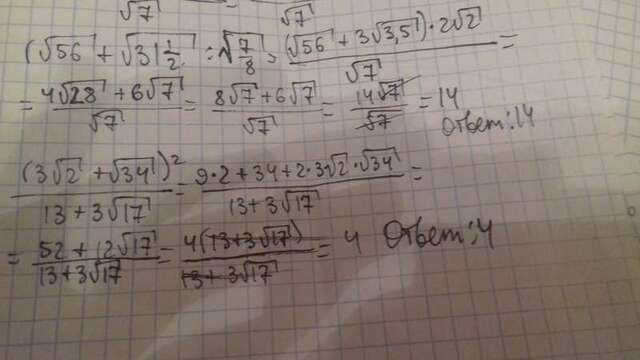 √7 √7
(√56 + √31 1/2 : √7/8 = (√56 + 3√3,5) · 2√2 / √7 =
= 4√28 + 6√7 / √7 = 8√7 + 6√7 / √7 = 14√7 / √7 = 14
Ответ: 14
(3√2 + √34)² / 13 + 3√17 = 9·2 + 34 + 2·3√2·√34 / 13 + 3√17 =
= 52 + 12√17 / 13 + 3√17 = 4(13 + 3√17) / 13 + 3√17 = 4 Ответ: 4